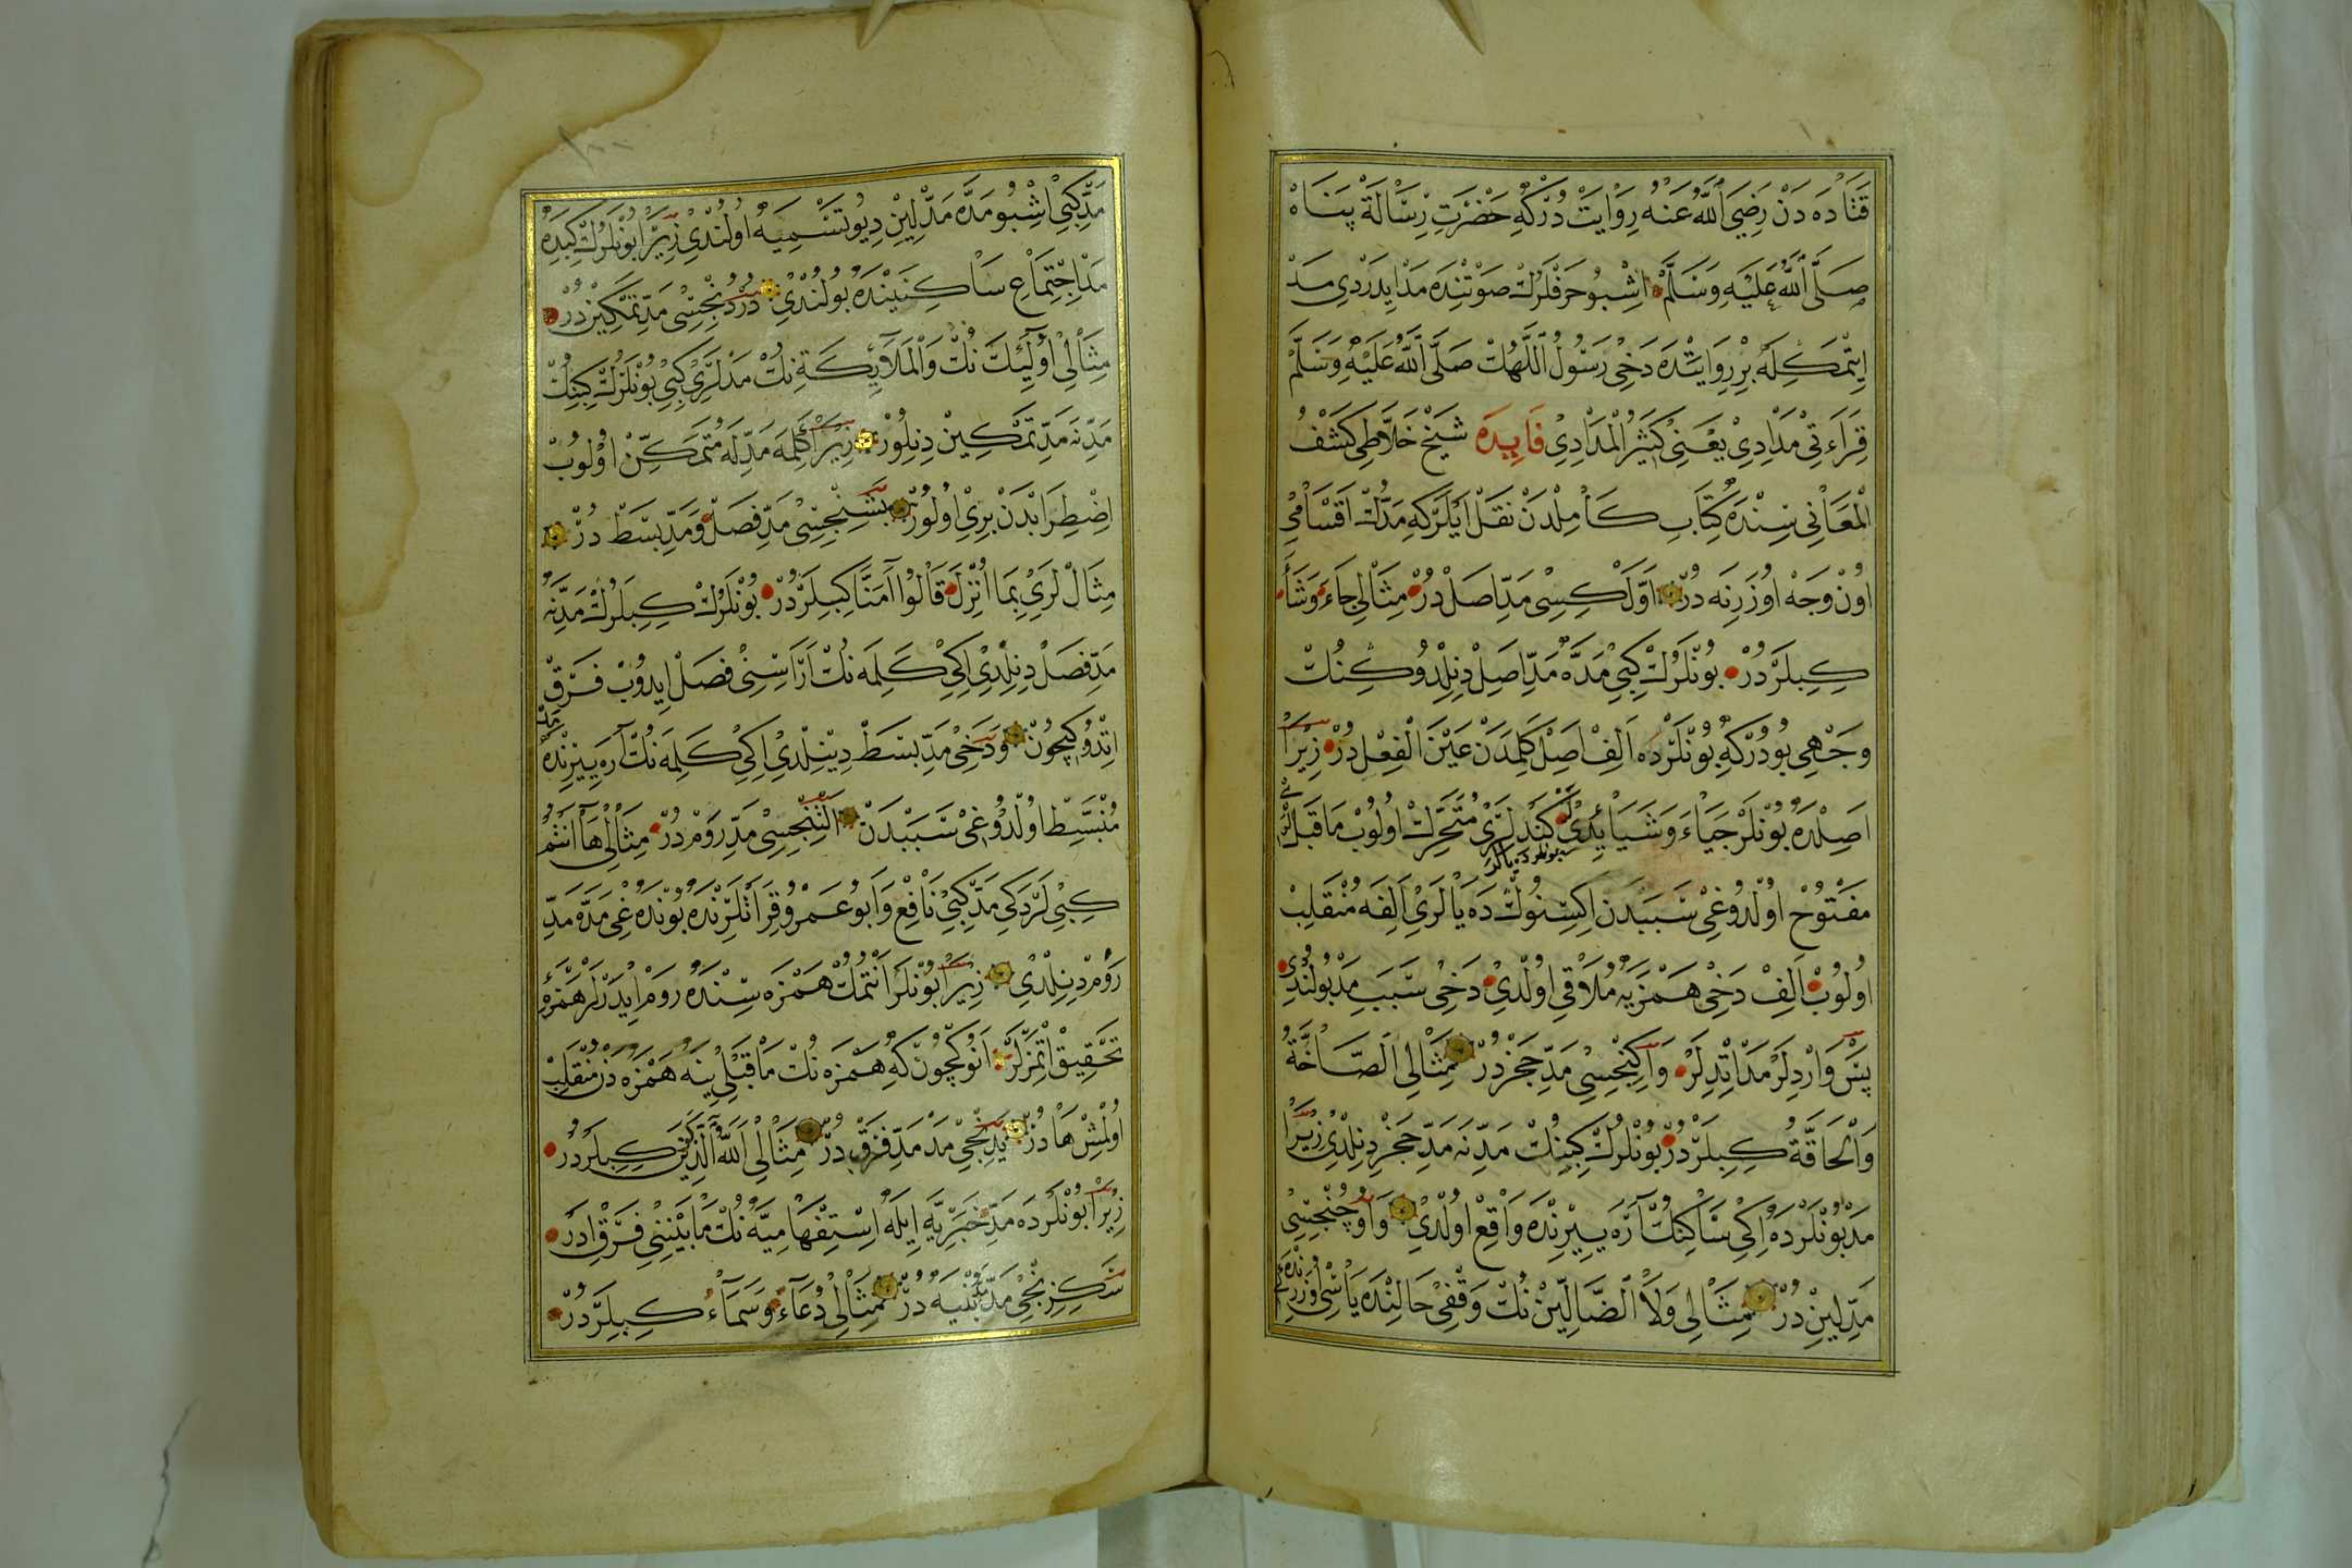 قَتَادَه دَنْ رَضِيَ اللّٰهُ عَنْهُ رِوَايَتْ دُرْكِه حَضْرَتِ رِسَالَةْ پَنَاهْ
صَلَّى اللّٰهُ عَلَيْهِ وَسَلَّمَ اشْبُو حَرْفْلَرُكْ صَوْتِنْدَه مَدْ ايدَرْدِى مَدْ
اِيتْمَكِلَه بِرْ رِوَايَتْدَه دَخِى رَسُولُ اللّٰهُكْ صَلَّى اللّٰهُ عَلَيْهِ وَسَلَّمْ
قِرَاءَتِى مَدَّادِى يَعْنِى كَثِيرُ الْمَدَّادِى فَايِدَه شَيْخْ خَلَاطِى كَشْفُ
الْمَعَانِى سِنْدَه كِتَابِ كَامِلْدَنْ نَقْلْ ايْلَرْكِه مَدُّكْ اَقْسَامِى
اوُنْ وَجَهْ اوُزَرِنَه دُرْ اَوَّلْكِسِى مَدِّ اَصِلْ دُرْ مِثَالِى جَاءَ وَشَاءَ
كِبِيلَرْدُرْ بُونْلَرُكْ كِبِى مَدَّه مَدِّ اَصِلْ دِنِلْدُوكِنُكْ
وَجْهِى بُودُرْكِه بُونْلَرْدَه اَلِفْ اَصِلْ كَلِمَدَنْ عَيْنَ الْفِعْلْ دُرْ زِيرَا
اَصِلْدَه بُونْلَرْ جَيَاءَ وَشَيَاءَ ايدِى كَنْدُلَرِى مُتَحَرِّكْ اُولُوبْ مَا قَبْللَرِى
بونلرده يالر
مَفْتُوحْ اوُلْدُوغِى سَبَبْدَنْ اِكِسِنُوكْ دَه يَالَرِى اَلِفَه مُنْقَلِبْ
اوُلُوبْ اَلِفْ دَخِى هَمْزَيَه مُلَاقِى اوُلْدِى دَخِى سَبَبِ مَدْ بُولُنْدِى
پَسْ وَارْدِلَرْ مَدْ اتْدِلَرْ وَاِكِنْجِسِى مَدِّ حَجْزْ دُرْ مِثَالِى اَلصَّاخَّةُ
وَالْحَاقَّةُ كِبِيلَرْدُرْ بُونْلَرُكْ كِبِينُكْ مَدِّنَه مَدِّ حَجْزْ دِنِلْدِى زِيرَا
مَدْ بُونْلَرْدَه اِكِى سَاكِنُكْ آرَه يِيرِنْدَه وَاقِعْ اوُلْدِى وَاوُچُنْجِسِى
مَدِّ لِينْ دُرْ مِثَالِى وَلَا الضَّالِّينْ نُكْ وَقْفِى حَالِنْدَه يَاسِى اوُزَرِنْدَه
مَدِّ كِبِى اشْبُو مَدَّه مَدِّ لِينْ دِيُو تَسْمِيَه اوُلُنْدِى زِيرَا بُونْلَرُكْ كِبِدَه
مَدْ اِجْتِمَاعِ سَاكِنَيْنْدَه بُولُنْدِى دُرْدُنْجِسِى مَدِّ تَمْكِينْ دُرْ
مِثَالِى اُولٰئِكَ نُكْ وَالْمَلَائِكَةِ نِكْ مَدْلَرِى كِبِى بُونْلَرُكْ كِبِنُكْ
مَدِّنَه مَدِّ تَمْكِينْ دِنِلُورْ زِيرَا كَلِمَه مَدِّلَه مُتَمَكِّنْ اوُلُوبْ
اِضْطِرَابْدَنْ بَرِى اوُلُورْ بَشِنْجِسِى مَدِّ فَصَلْ وَمَدِّ بَسَطْ دُرْ
مِثَالْ لَرِى بِمَا اُنْزِلَ قَالُوا آمَنَّا كِبِيلَرْدُرْ بُونْلَرُكْ كِبِيلَرُكْ مَدِّنَه
مَدِّ فَصَلْ دِنِلْدِى اِكِى كَلِمَه نُكْ آرَاسِنِى فَصَلْ ايدُوبْ فَرَقْ
اِتْدُوكِيچُونْ وَدَخِى مَدِّ بَسَطْ دِينِلْدِى اِكِى كَلِمَه نُكْ آرَه يِيرِنْدَه مَدّ
مُنْبَسِطْ اوُلْدُوغِى سَبَبْدَنْ اَلْتِنْجِسِى مَدِّ رَوْمْ دُرْ مِثَالِى هَا اَنْتُمْ
كِبِى لَرْدَكِى مَدْ كِبِى نَافِعْ وَاَبُو عَمْرُو قِرَأَتْلَرِنْدَه بُونْدَه غِى مَدَّه مَدِّ
رَوْمْ دِنِلْدِى زِيرَا بُونْلَرْ اَنْتُمُكْ هَمْزَه سِنْدَه رَوْمْ ايدَرْلَرْ هَمْزَه‌ءِ
تَحْقِيقْ اِتْمَزْلَرْ اَنُوكِچُونْ كِه هَمْزَه نُكْ مَا قَبْلِى يِنَه هَمْزَه دَنْ مُنْقَلِبْ
اوُلْمِشْ هَا دُرْ يَدِنْجِى مَدْ مَدِّ فَرْقْ دُرْ مِثَالِى اَللّٰهُ الَّذِينَ كِبِيلَرْدُرْ
زِيرَا بُونْلَرْدَه مَدِّ خَبَرِيَّه اِيلَه اِسْتِفْهَامِيَّه نُكْ مَابَيْنِنِى فَرْقْ ادَرْ
سَكِزِنْجِى مَدِّ بُنْيَه دُرْ مِثَالِى دُعَاءً وَسَمَاءً كِبِيلَرْدُرْ